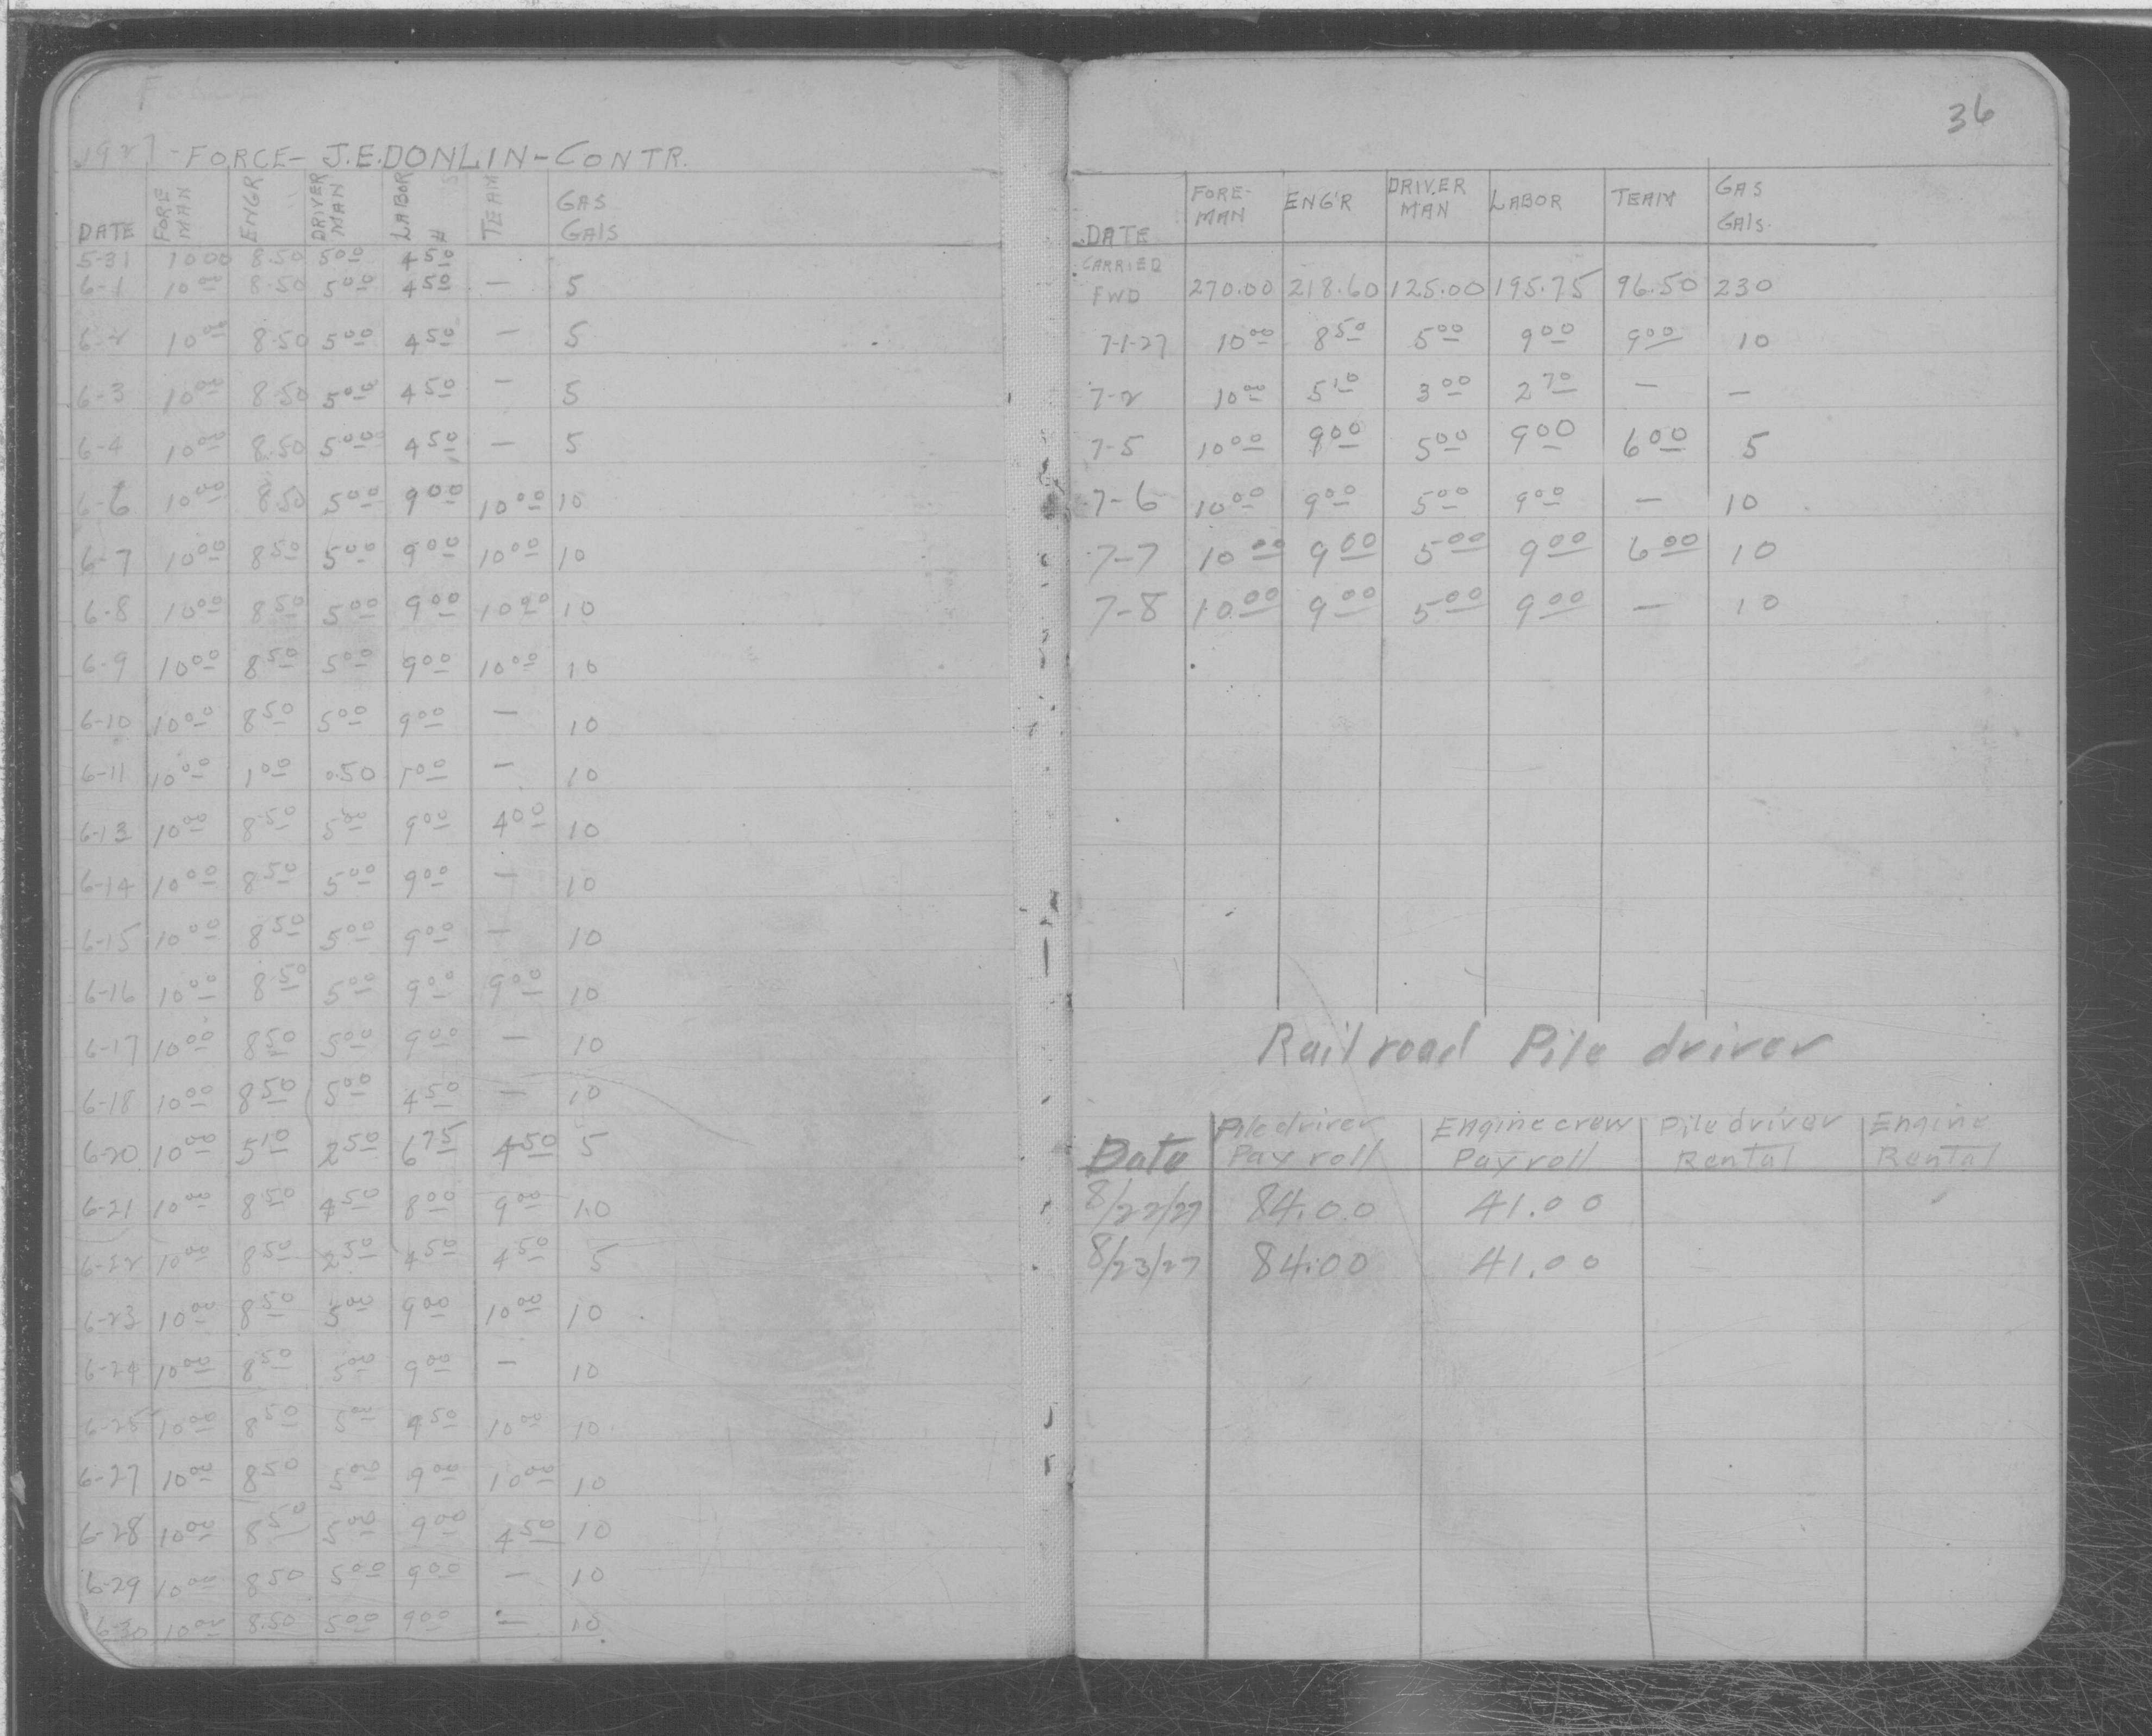 1927 - FORCE - J.E. DONLIN - CONTR.
DATE FORE MAN ENGR DRIVER MAN LABOR # TEAM GAS GALS
5-31 10 00 8.50 5 00 4 50
6-1 10 00 8.50 5 00 4 50 — 5
6-2 10 00 8.50 5 00 4 50 — 5
6-3 10 00 8.50 5 00 4 50 — 5
6-4 10 00 8.50 5 00 4 50 — 5
6-6 10 00 8.50 5 00 9 00 10 00 10
6-7 10 00 8 50 5 00 9 00 10 00 10
6-8 10 00 8 50 5 00 9 00 10 00 10
6-9 10 00 8 50 5 00 9 00 10 00 10
6-10 10 00 8 50 5 00 9 00 — 10
6-11 10 00 1 00 0.50 1 00 — 10
6-13 10 00 8 50 5 00 9 00 4 00 10
6-14 10 00 8 50 5 00 9 00 — 10
6-15 10 00 8 50 5 00 9 00 — 10
6-16 10 00 8 50 5 00 9 00 9 00 10
6-17 10 00 8 50 5 00 9 00 — 10
6-18 10 00 8 50 5 00 4 50 — 10
6-20 10 00 5 10 2 50 6 75 4 50 5
6-21 10 00 8 50 4 50 8 00 9 00 10
6-22 10 00 8 50 2 50 4 50 4 50 5
6-23 10 00 8 50 5 00 9 00 10 00 10
6-24 10 00 8 50 5 00 9 00 — 10
6-25 10 00 8 50 5 00 4 50 10 00 10
6-27 10 00 8 50 5 00 9 00 10 00 10
6-28 10 00 8 50 5 00 9 00 4 50 10
6-29 10 00 8 50 5 00 9 00 — 10
6-30 10 00 8.50 5 00 9 00 — 10
36
DATE FORE-MAN ENG'R DRIVER MAN LABOR TEAM GAS GALS.
CARRIED FWD 270.00 218.60 125.00 195.75 96.50 230
7-1-27 10 00 8 50 5 00 9 00 9 00 10
7-2 10 00 5 10 3 00 2 70 — —
7-5 10 00 9 00 5 00 9 00 6 00 5
7-6 10 00 9 00 5 00 9 00 — 10
7-7 10 00 9 00 5 00 9 00 6 00 10
7-8 10 00 9 00 5 00 9 00 — 10
Railroad Pile driver
Date Pile driver Pay roll Engine crew Pay roll Pile driver Rental Engine Rental
8/22/27 84.00 41.00
8/23/27 84.00 41.00